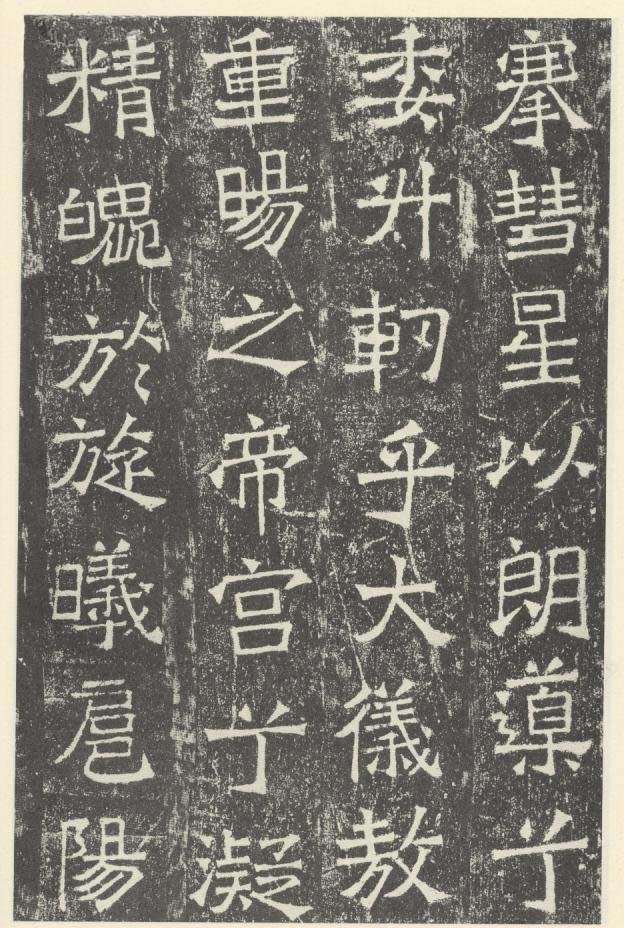 搴彗星以朗導兮
委升軔乎大儀敖
重暘之帝宫兮凝
精魄於旋曦扈陽